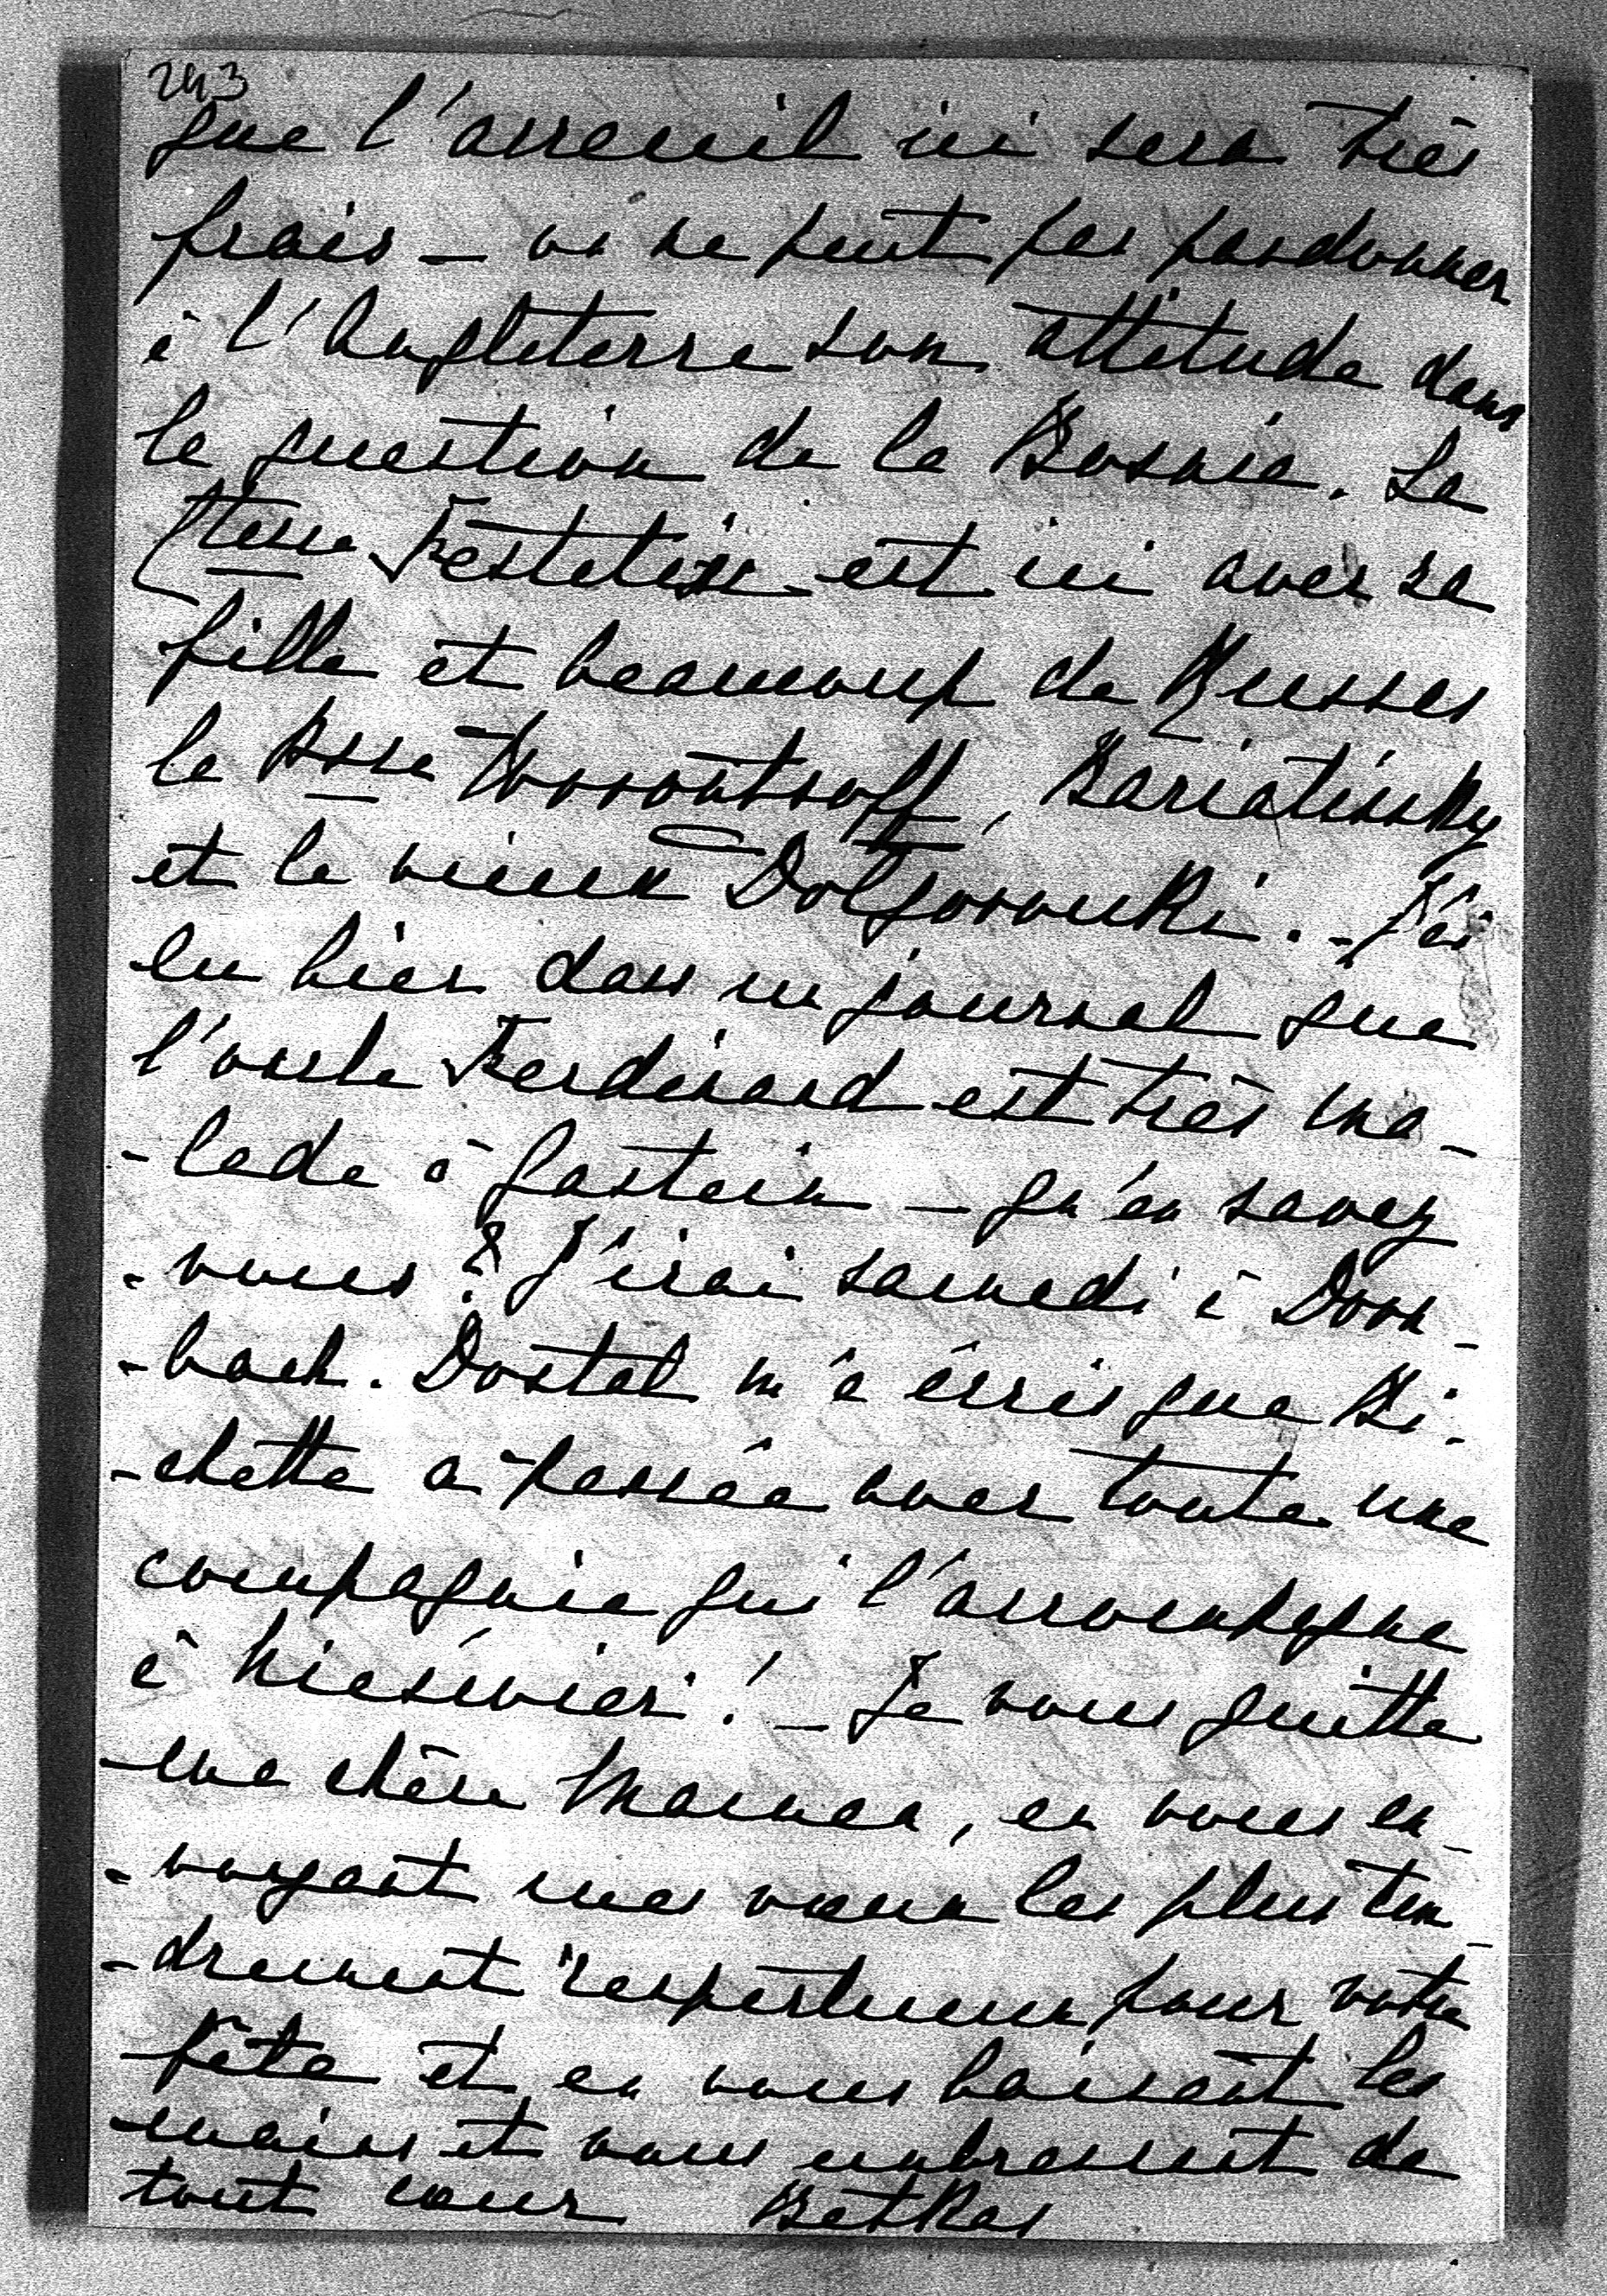 243
que l'accueil ici sera très
frais – on ne peut pas pardonner
à l'Angleterre son attitude dans
la question de la Bosnie. La
Ctesse Festetics est ici avec sa
fille et beaucoup de Russes
la Psse Worontsoff, Bariatinsky
et le vieux Dolgorouki. – J'ai
lu hier dans un journal que
l'oncle Ferdinand est très ma-
-lade à Gastein – qu'en savez
-vous? J'irai samedi à Dorn-
-bach. Dostal m'a écris que Bi-
-chette a passée avec toute une
compagnie qui l'accompagne
à Nieswiez! – Je vous quitte
ma chère Maman, en vous en-
-voyant mes vœux les plus ten-
-drement respectueux pour votre
fête et en vous baisant les
mains et vous embrassant de
tout cœur Betka